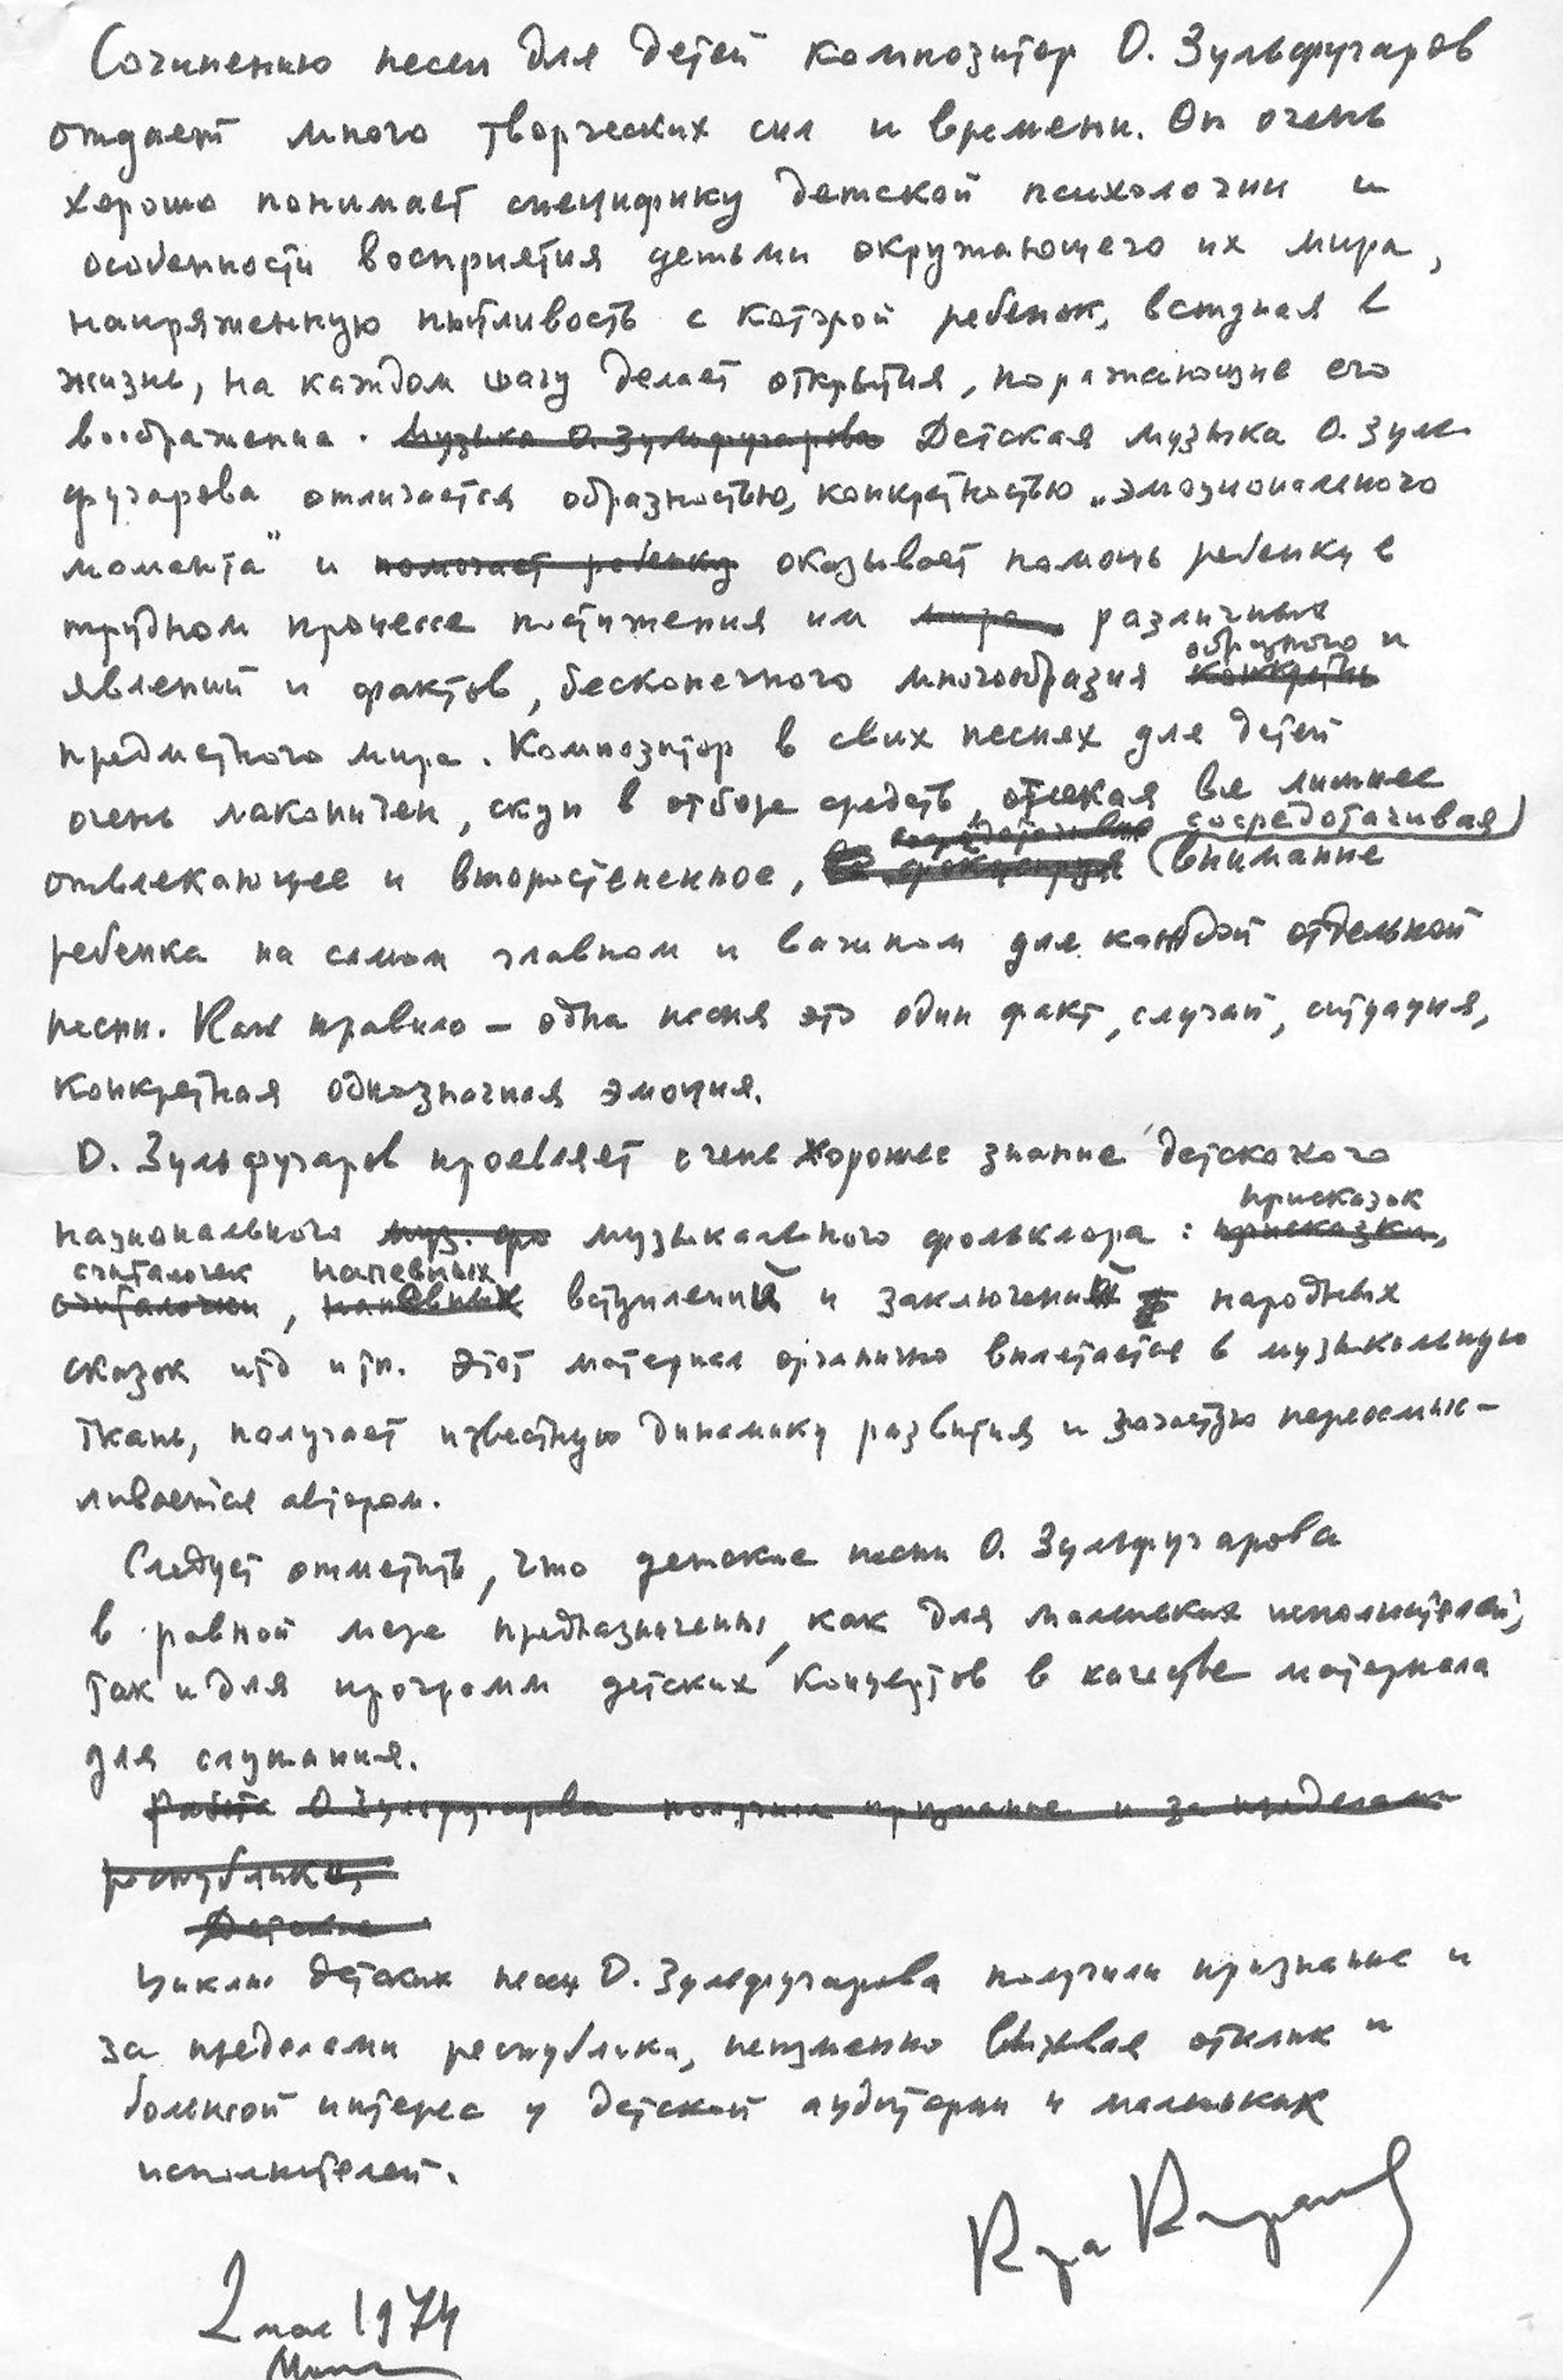 Сочинению песен для детей композитор О. Зульфугаров
отдает много творческих сил и времени. Он очень
хорошо понимает специфику детской психологии и
особенности восприятия детьми окружающего их мира,
напряженную пытливость с которой ребенок, вступая в
жизнь, на каждом шагу делает открытия, поражающие его
воображение. Музыка О. Зульфугарова Детская музыка О. Зуль
фугарова отличается образностью, конкретностью „эмоционального
момента" и помогает ребенку оказывает помощь ребенку в
трудном процессе постижения им мира различных
образного и
явлений и фактов, бесконечного многообразия конкретн
предметного мира. Композитор в своих песнях для детей
очень лаконичен, скуп в отборе средств, отсекая все лишнее
сосредотачивая
отвлекающее и второстепенное, фокусируя (внимание
ребенка на самом главном и важном для каждой отдельной
песни. Как правило – одна песня это один факт, случай, ситуация,
конкретная однозначная эмоция.
О. Зульфугаров проявляет очень хорошее знание детского
присказок
национального муз. фо музыкального фольклора: присказки,
считалочек напевных
считалочки, напевных вступлений и заключений народных
сказок итд итп. Этот материал органично вплетается в музыкальную
ткань, получает известную динамику развития и зачастую переосмыс-
ливается автором.
Следует отметить, что детские песни О. Зульфугарова
в равной мере предназначены, как для маленьких исполнителей,
так и для программ детских концертов в качестве материала
для слушания.
Работа О. Зульфугарова получила признание и за пределами
республики,
Детские
Циклы детских песен О. Зульфугарова получили признание и
за пределами республики, неизменно вызывая отклик и
большой интерес у детской аудитории и маленьких
исполнителей.
2 мая 1974